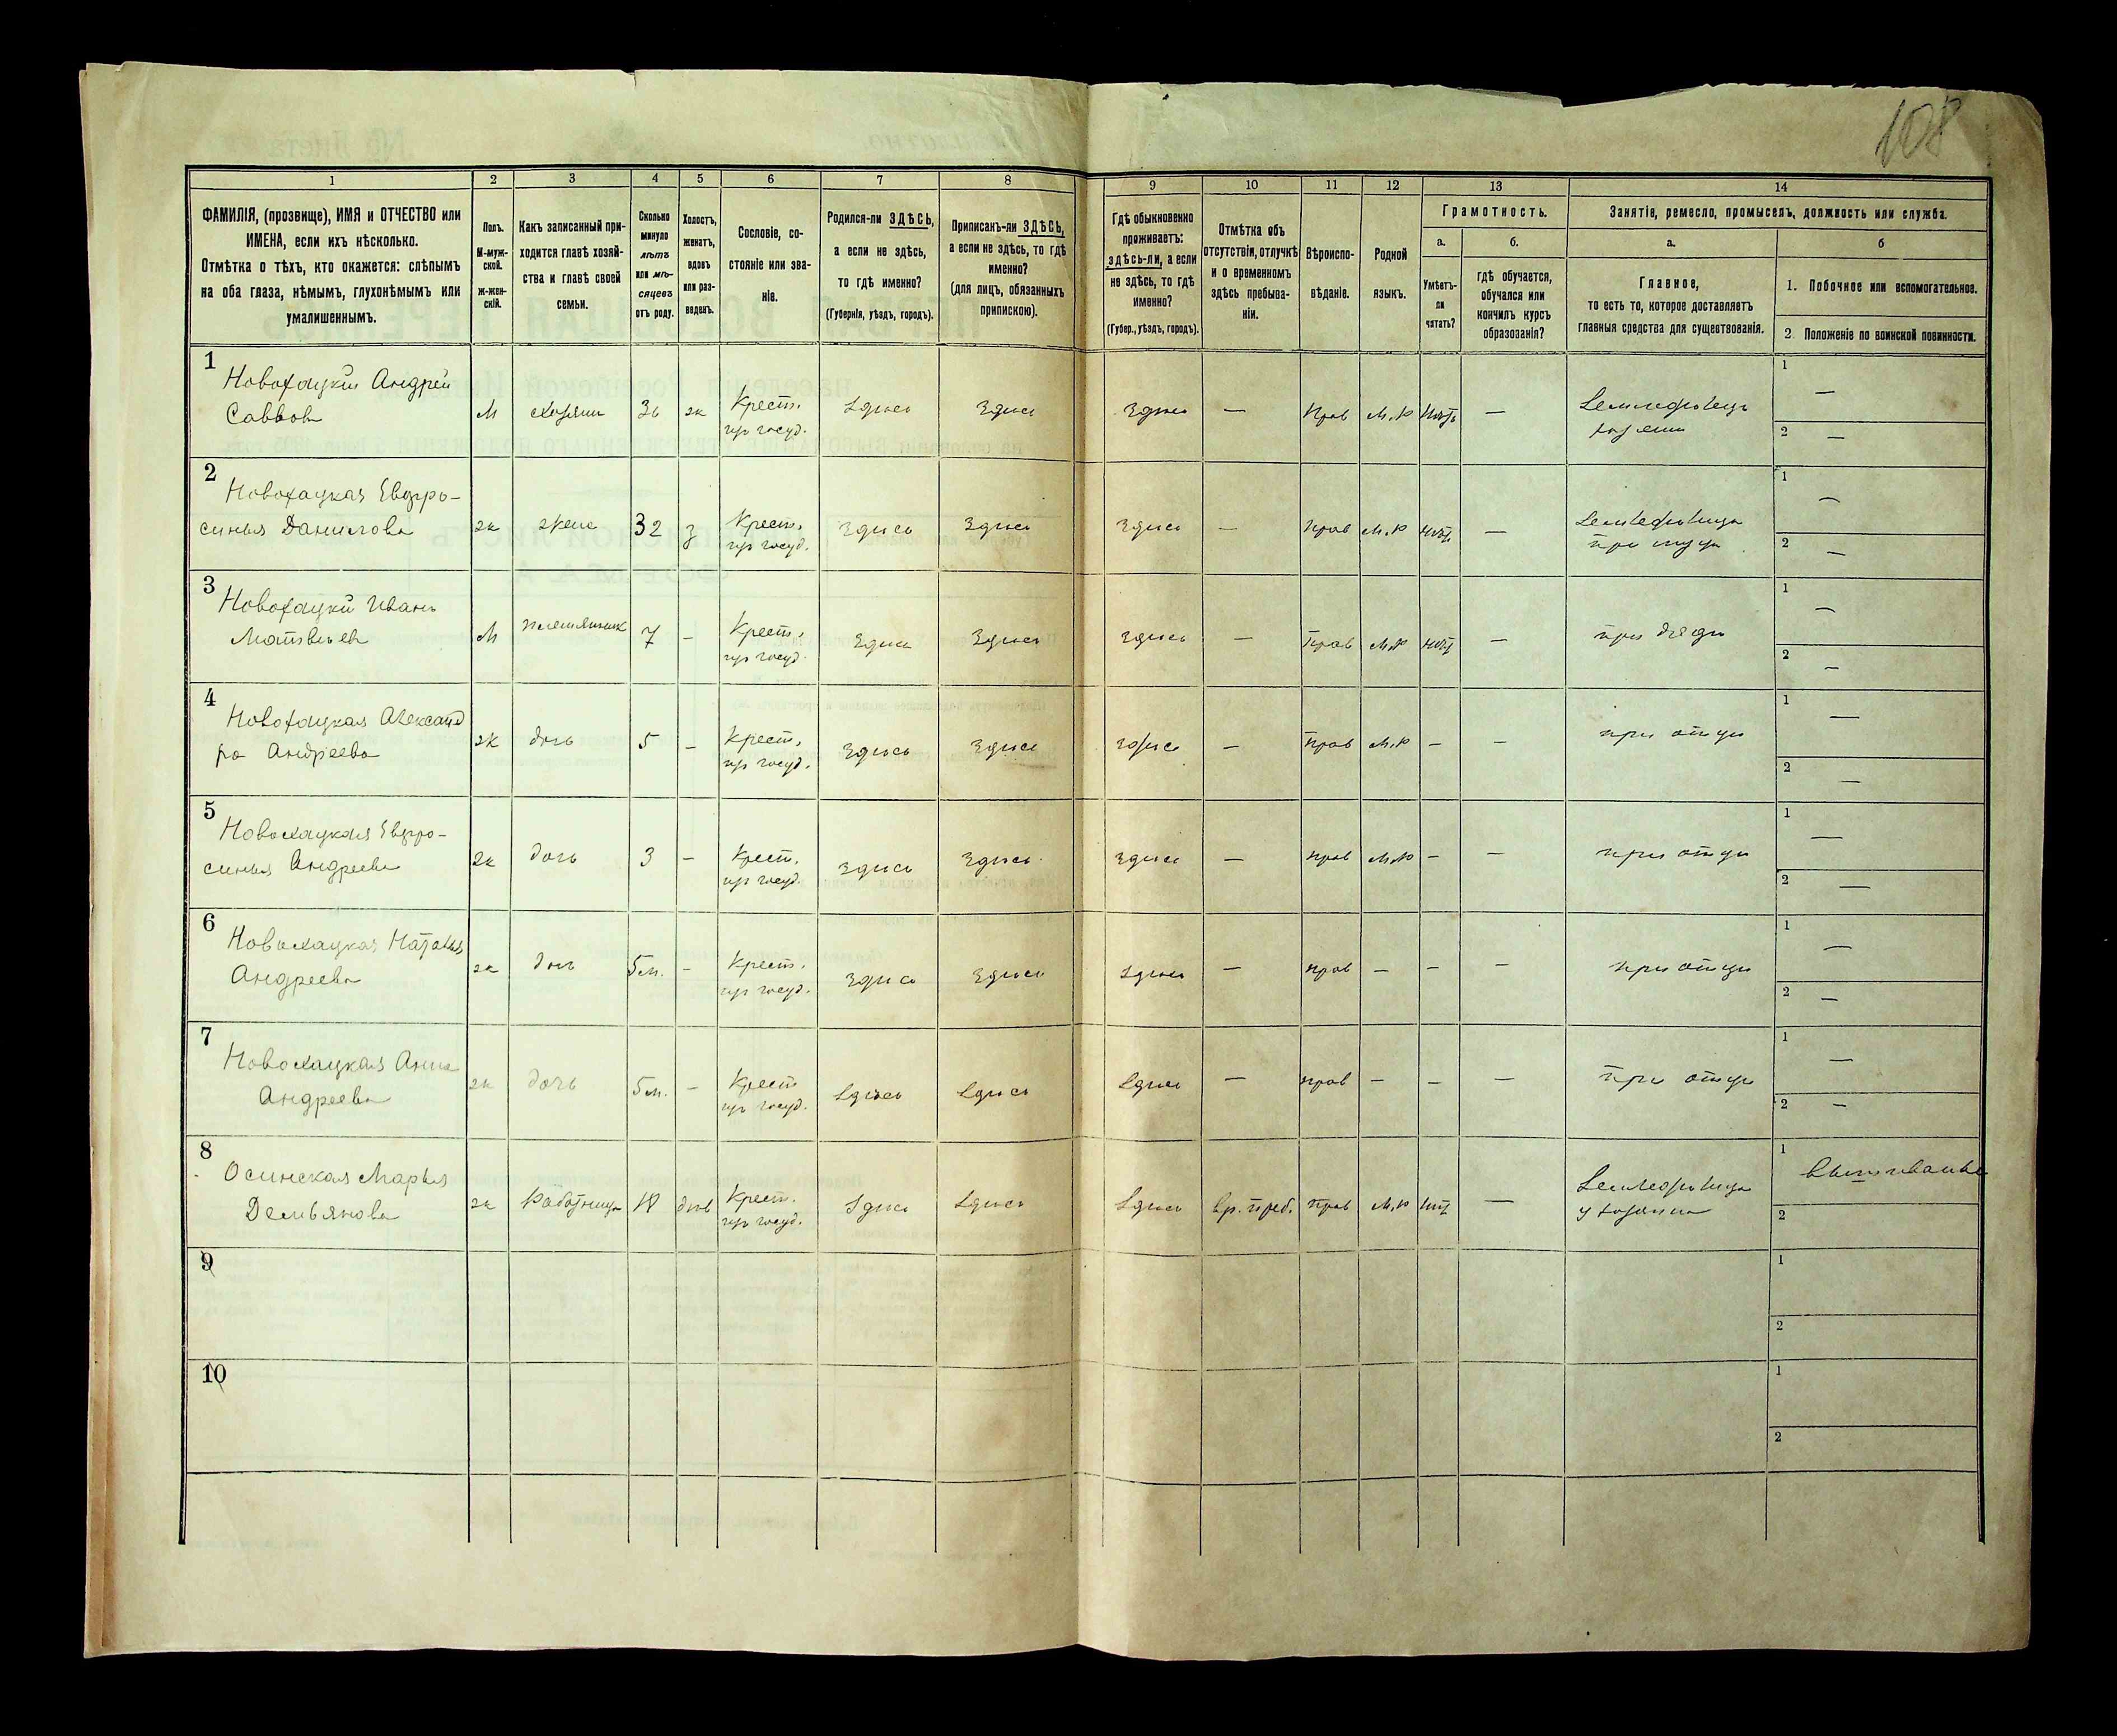 108
1 2 3 4 5 6 7 8 9 10 11 12 13 14
ФАМИЛІЯ, (прозвище), ИМЯ и ОТЧЕСТВО или
ИМЕНА, если ихъ нѣсколько.
Отмѣтка о тѣхъ, кто окажется: слѣпымъ
на оба глаза, нѣмымъ, глухонѣмымъ или
умалишеннымъ.
Полъ.
М-муж-
ской.
Ж-жен-
скій.
Какъ записанный при-
ходится главѣ хозяй-
ства и главѣ своей
семьи.
Сколько
минуло
лѣтъ
или мѣ-
сяцевъ
отъ роду.
Холостъ,
женатъ,
вдовъ
или раз-
веденъ.
Сословіе, со-
стояніе или зва-
ніе.
Родился-ли ЗДѢСЬ,
а если не здѣсь,
то гдѣ именно?
(Губернія, уѣздъ, городъ).
Приписанъ-ли ЗДѢСЬ,
а если не здѣсь, то гдѣ
именно?
(для лицъ, обязанныхъ
припискою).
Гдѣ обыкновенно
проживаетъ:
здѣсь-ли, а если
не здѣсь, то гдѣ
именно?
(Губер., уѣздъ, городъ).
Отмѣтка объ
отсутствіи, отлучкѣ
и о временномъ
здѣсь пребыва-
ніи.
Вѣроиспо-
вѣданіе.
Родной
языкъ.
Грамотность.
а.
Умѣетъ-
ли
читать?
б.
гдѣ обучается,
обучался или
кончилъ курсъ
образованія?
Занятіе, ремесло, промыселъ, должность или служба.
а.
Главное,
то есть то, которое доставляетъ
главныя средства для существованія.
б
1. Побочное или вспомогательное.
2. Положеніе по воинской повинности.
1
Новохацкій Андрей
Саввов
М хозяин ж Крест. здѣсь здѣсь здѣсь — Прав М.р нѣтъ — Земледѣлецъ 1 —
из госуд. хозяин 2 —
2
Новохацкая Евфро-
синья Данилова ж жена 32 з Крест. здѣсь здѣсь здѣсь — прав М.р нѣт — Земледѣлица 1 —
из госуд. при мужѣ 2 —
3
Новохацкій Иван
Матвѣев М племянник 7 – Крест. здѣсь здѣсь здѣсь — Прав М.р нѣт — при дядѣ 1 —
из госуд. 2 —
4
Новохацкая Александ
ра Андреева ж дочь 5 – Крест. здѣсь здѣсь здѣсь — Прав М.р – — при отцѣ 1 —
из госуд. 2 —
5
Новохацкая Евфро-
синья Андреева ж дочь 3 – Крест. здѣсь здѣсь здѣсь — прав М.р – — при отцѣ 1 —
из госуд. 2 —
6
Новохацкая Наталья
Андреева ж дочь 5 м. – Крест. здѣсь здѣсь здѣсь — прав – – — при отцѣ 1 —
из госуд. 2 —
7
Новохацкая Анна
Андреева ж дочь 5 м. – Крест здѣсь здѣсь здѣсь — прав – – — при отцѣ 1 —
из госуд. 2 —
8
Осинская Марья
Демьянова ж Работница дѣв Крест. здѣсь здѣсь здѣсь вр. преб. прав М.р нѣт — Земледѣлица 1 вышиванье
из госуд. у хозяина 2
9
1
2
10
1
2